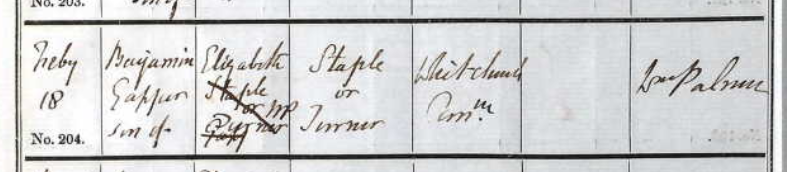 No. 203.
Feby
18
No. 204.
Benjamin
Gapper
son of
Elizabeth
Staple
or
Turner
Staple
or
Turner
Whitchurch
Wm Palmer